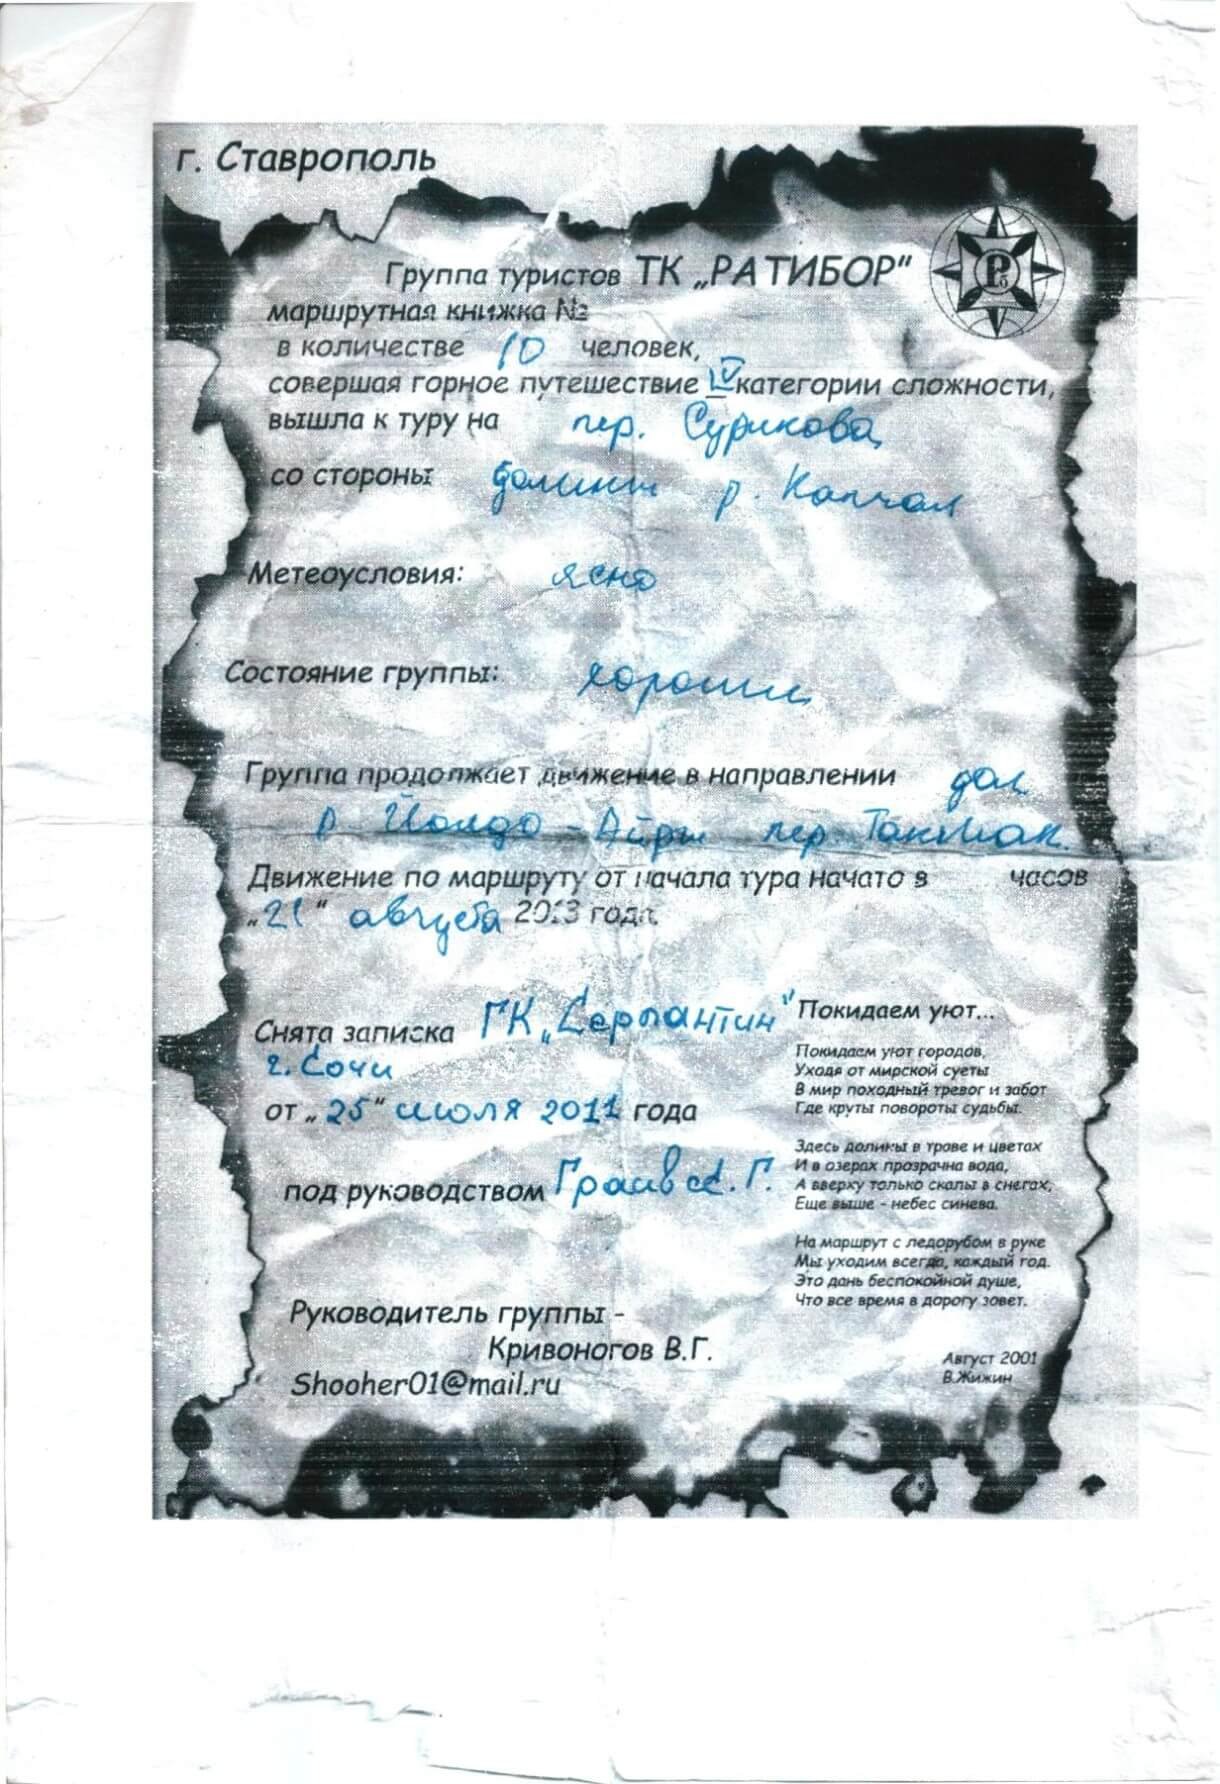 г. Ставрополь
Группа туристов ТК „РАТИБОР"
маршрутная книжка №
в количестве 10 человек,
совершая горное путешествие IV категории сложности,
вышла к туру на пер. Сурикова
со стороны долины р. Капчал
Метеоусловия: ясно
Состояние группы:
Группа продолжает движение в направлении дол.
р. Йолдо-Айры пер.
Движение по маршруту от начала тура начато в часов
„21" августа 2013 года.
Снята записка ГК „Серпантин"
г. Сочи
от „25" июля 2011 года
под руководством
Руководитель группы -
Кривоногов В.Г.
Shooher01@mail.ru
Покидаем уют...
Покидаем уют городов,
Уходя от мирской суеты
В мир походный тревог и забот
Где круты повороты судьбы.
Здесь долины в траве и цветах
И в озерах прозрачна вода,
А вверху только скалы в снегах,
Еще выше - небес синева.
На маршрут с ледорубом в руке
Мы уходим всегда, каждый год.
Это дань беспокойной душе,
Что все время в дорогу зовет.
Август 2001
В.Жижин